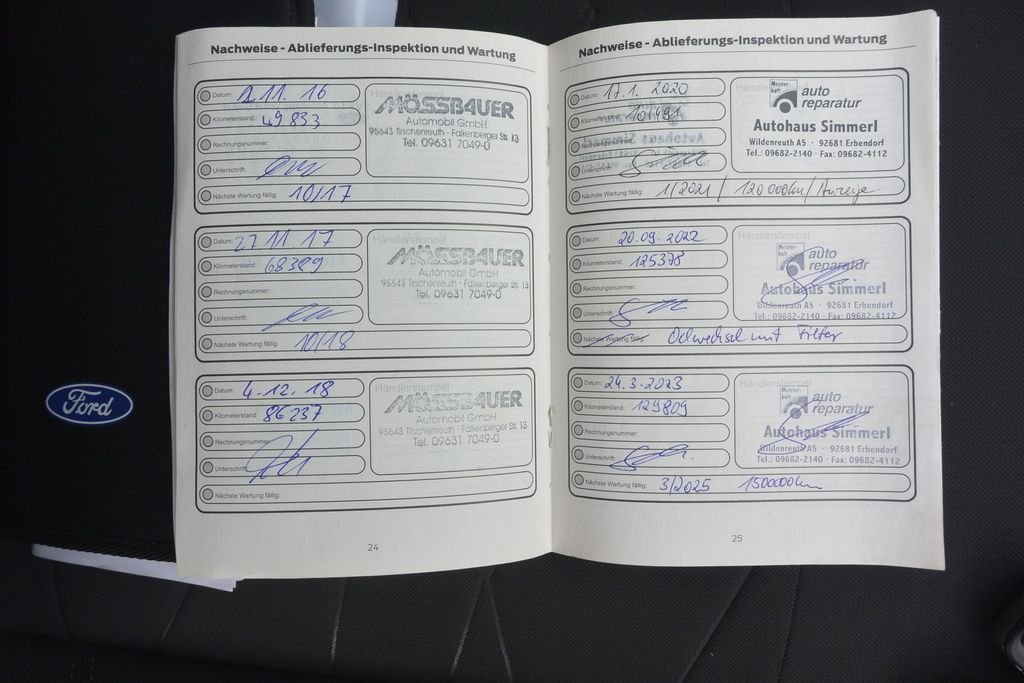 Nachweise - Ablieferungs-Inspektion und Wartung
Datum: 1.11. 16
Kilometerstand: 49 833
Rechnungsnummer:
Unterschrift:
Nächste Wartung fällig: 10/17
MÖSSBAUER
Automobil GmbH
95643 Tirschenreuth - Falkenberger Str. 13
Tel. 09631 7049-0
Datum: 27 11 17
Kilometerstand: 68389
Rechnungsnummer:
Unterschrift:
Nächste Wartung fällig: 10/18
Händlerstempel
MÖSSBAUER
Automobil GmbH
95643 Tirschenreuth - Falkenberger Str. 13
Tel. 09631 7049-0
Datum: 4.12.18
Kilometerstand: 86237
Rechnungsnummer:
Unterschrift:
Nächste Wartung fällig:
Händlerstempel
MÖSSBAUER
Automobil GmbH
95643 Tirschenreuth - Falkenberger Str. 13
Tel. 09631 7049-0
24
Nachweise - Ablieferungs-Inspektion und Wartung
Datum: 17.1. 2020
Kilometerstand: 101491
Rechnungsnummer:
Unterschrift:
Nächste Wartung fällig: 1/2021 / 120 000km / Anzeige
Meister-
haft
auto
reparatur
Autohaus Simmerl
Wildenreuth A5 · 92681 Erbendorf
Tel.: 09682-2140 · Fax: 09682-4112
Datum: 20.09.2022
Kilometerstand: 125378
Rechnungsnummer:
Unterschrift:
Nächste Wartung fällig: Oelwechsel mit Filter
Händlerstempel
Meister-
haft
auto
reparatur
Autohaus Simmerl
Wildenreuth A5 · 92681 Erbendorf
Tel.: 09682-2140 · Fax: 09682-4112
Datum: 24.3.2023
Kilometerstand: 129809
Rechnungsnummer:
Unterschrift:
Nächste Wartung fällig: 3/2025 150000km
Händlerstempel
Meister-
haft
auto
reparatur
Autohaus Simmerl
Wildenreuth A5 · 92681 Erbendorf
Tel.: 09682-2140 · Fax: 09682-4112
25
Ford